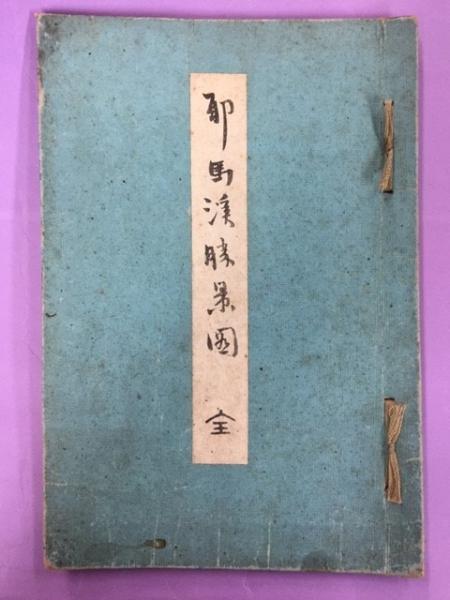 耶馬渓勝景図 全